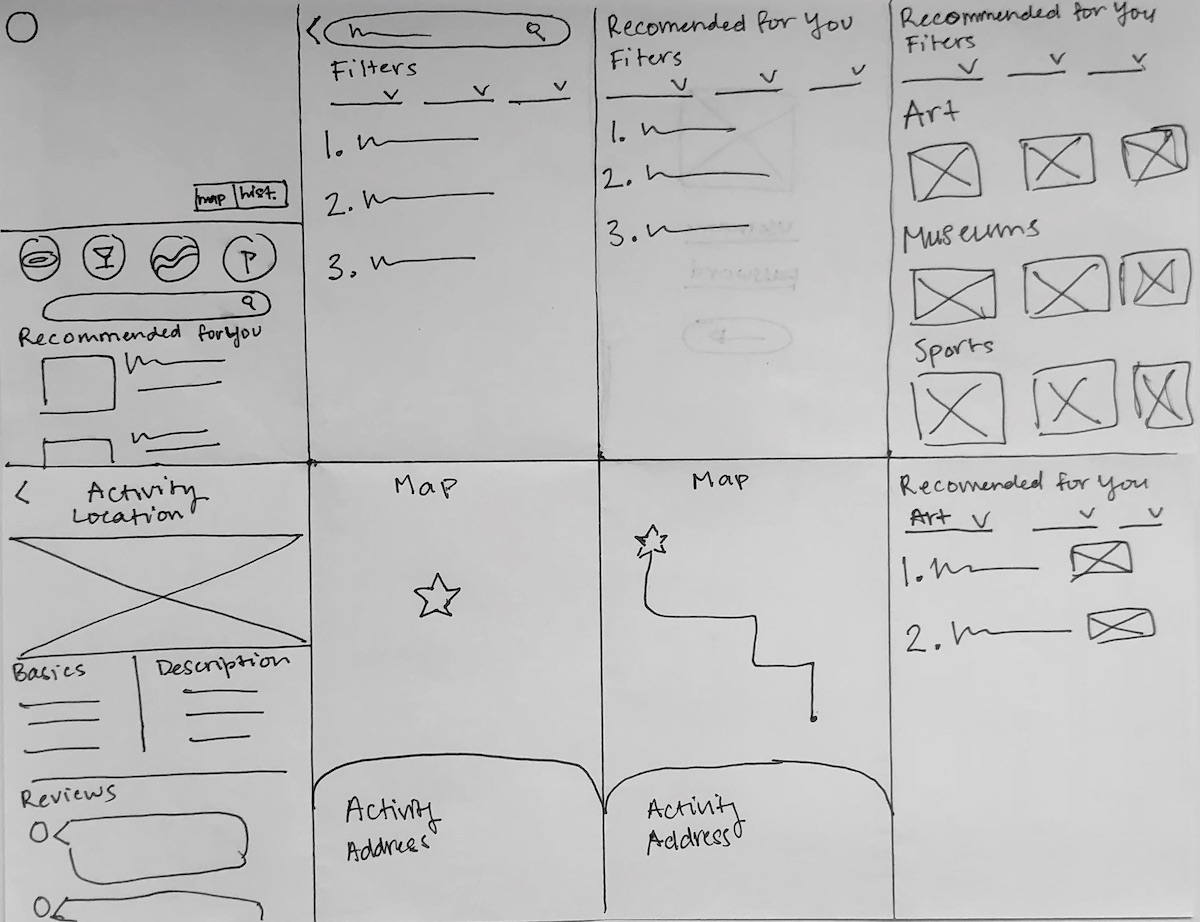 map hist.
P
Recommended for you
Filters
1.
2.
3.
Recomended for You
Fiters
1.
2.
3.
Recommended for You
Fiters
Art
Museums
Sports
< Activity
Location
Basics
Description
Reviews
Map
Activity
Address
Map
Activity
Address
Recomended for You
Art
1.
2.